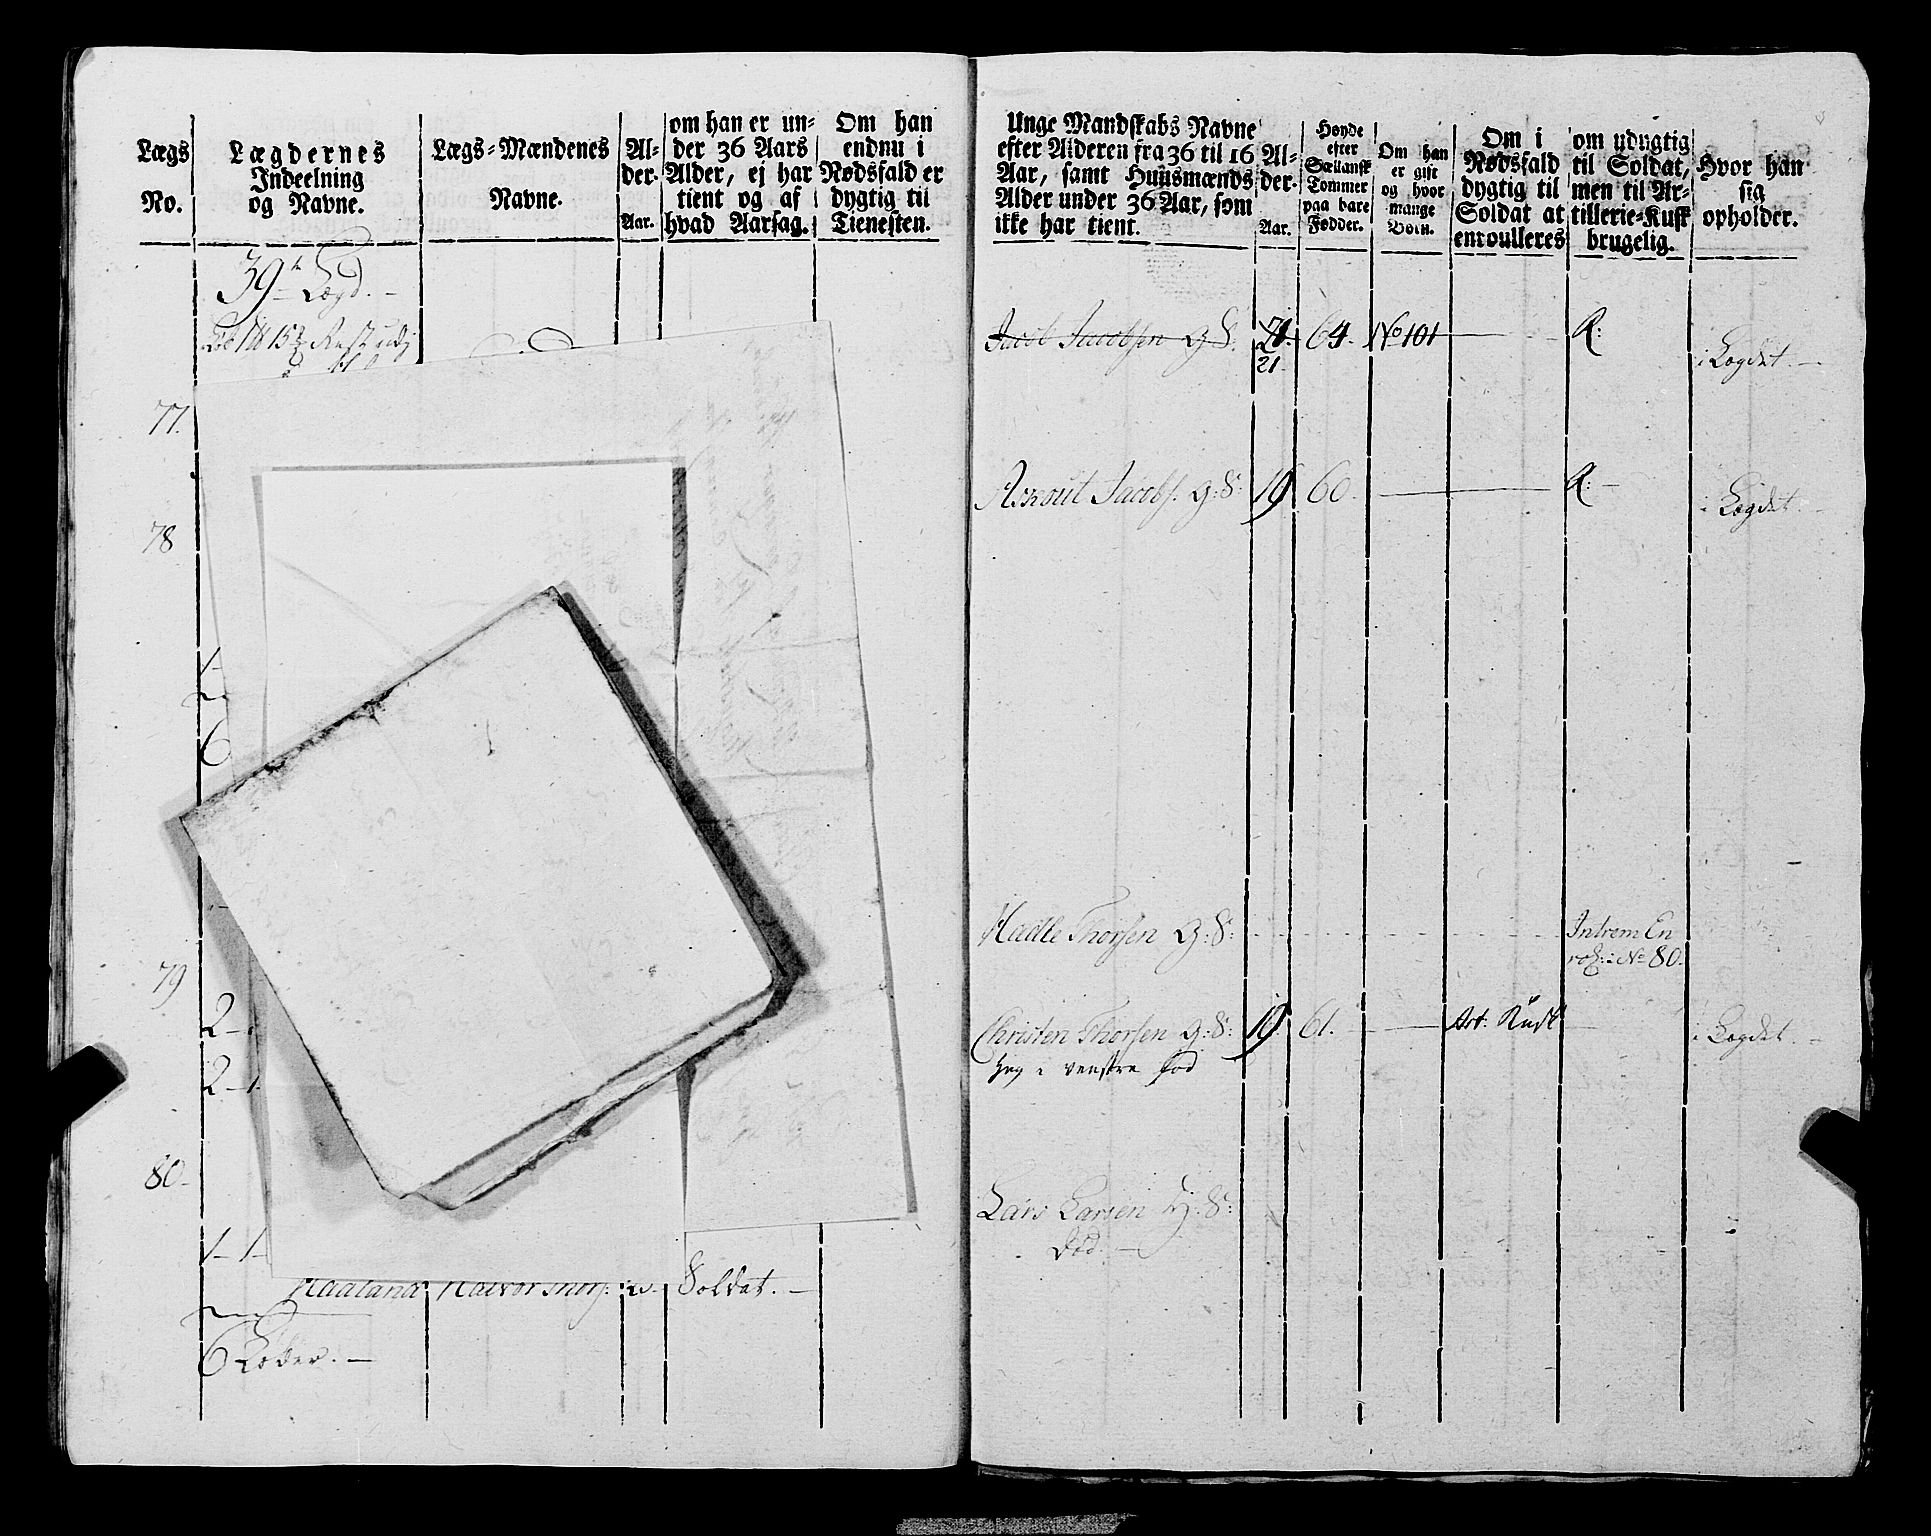 Lægs
No.
Lægdernes
Indeelning
og Navne.
Lægs-Mændenes
Navne.
Al-
der.
Aar.
om han er un-
der 36 Aars
Alder, ej har
tient og af
hvad Aarsag.
Om han
endnu i
Nødsfald er
dygtig til
Tienesten.
39te Lægd.
77.
78
1-
6
79
2-1
2-1
80.
1-1-
Haaland Halvor Thors: Soldat.
6 Løber.
Unge Mandskabs Navne
efter Alderen fra 36 til 16
Aar, samt Huusmænds
Alder under 36 Aar, som
ikke har tient.
Al-
der.
Aar.
Høyde
efter
Sællansk
Tommer
paa bare
Fødder.
Om han
er gift
og hvor
mange
Børn.
Om i
Nødsfald
dygtig til
Soldat at
enroulleres
om udygtig
til Soldat,
men til Ar-
tillerie-Kusk
brugelig.
Hvor han
sig
opholder.
Jacob Jacobsen G:S: 64. No 101 R: i Lægdet.
21.
Jacobs. G:S: 19 60. R: i Lægdet.
Thorsen G:S: En
No 80.
Christen Thorsen G:S: 19 61. Art: Kusk i Lægdet.
i venstre fod
Lars Larsen S:
død.